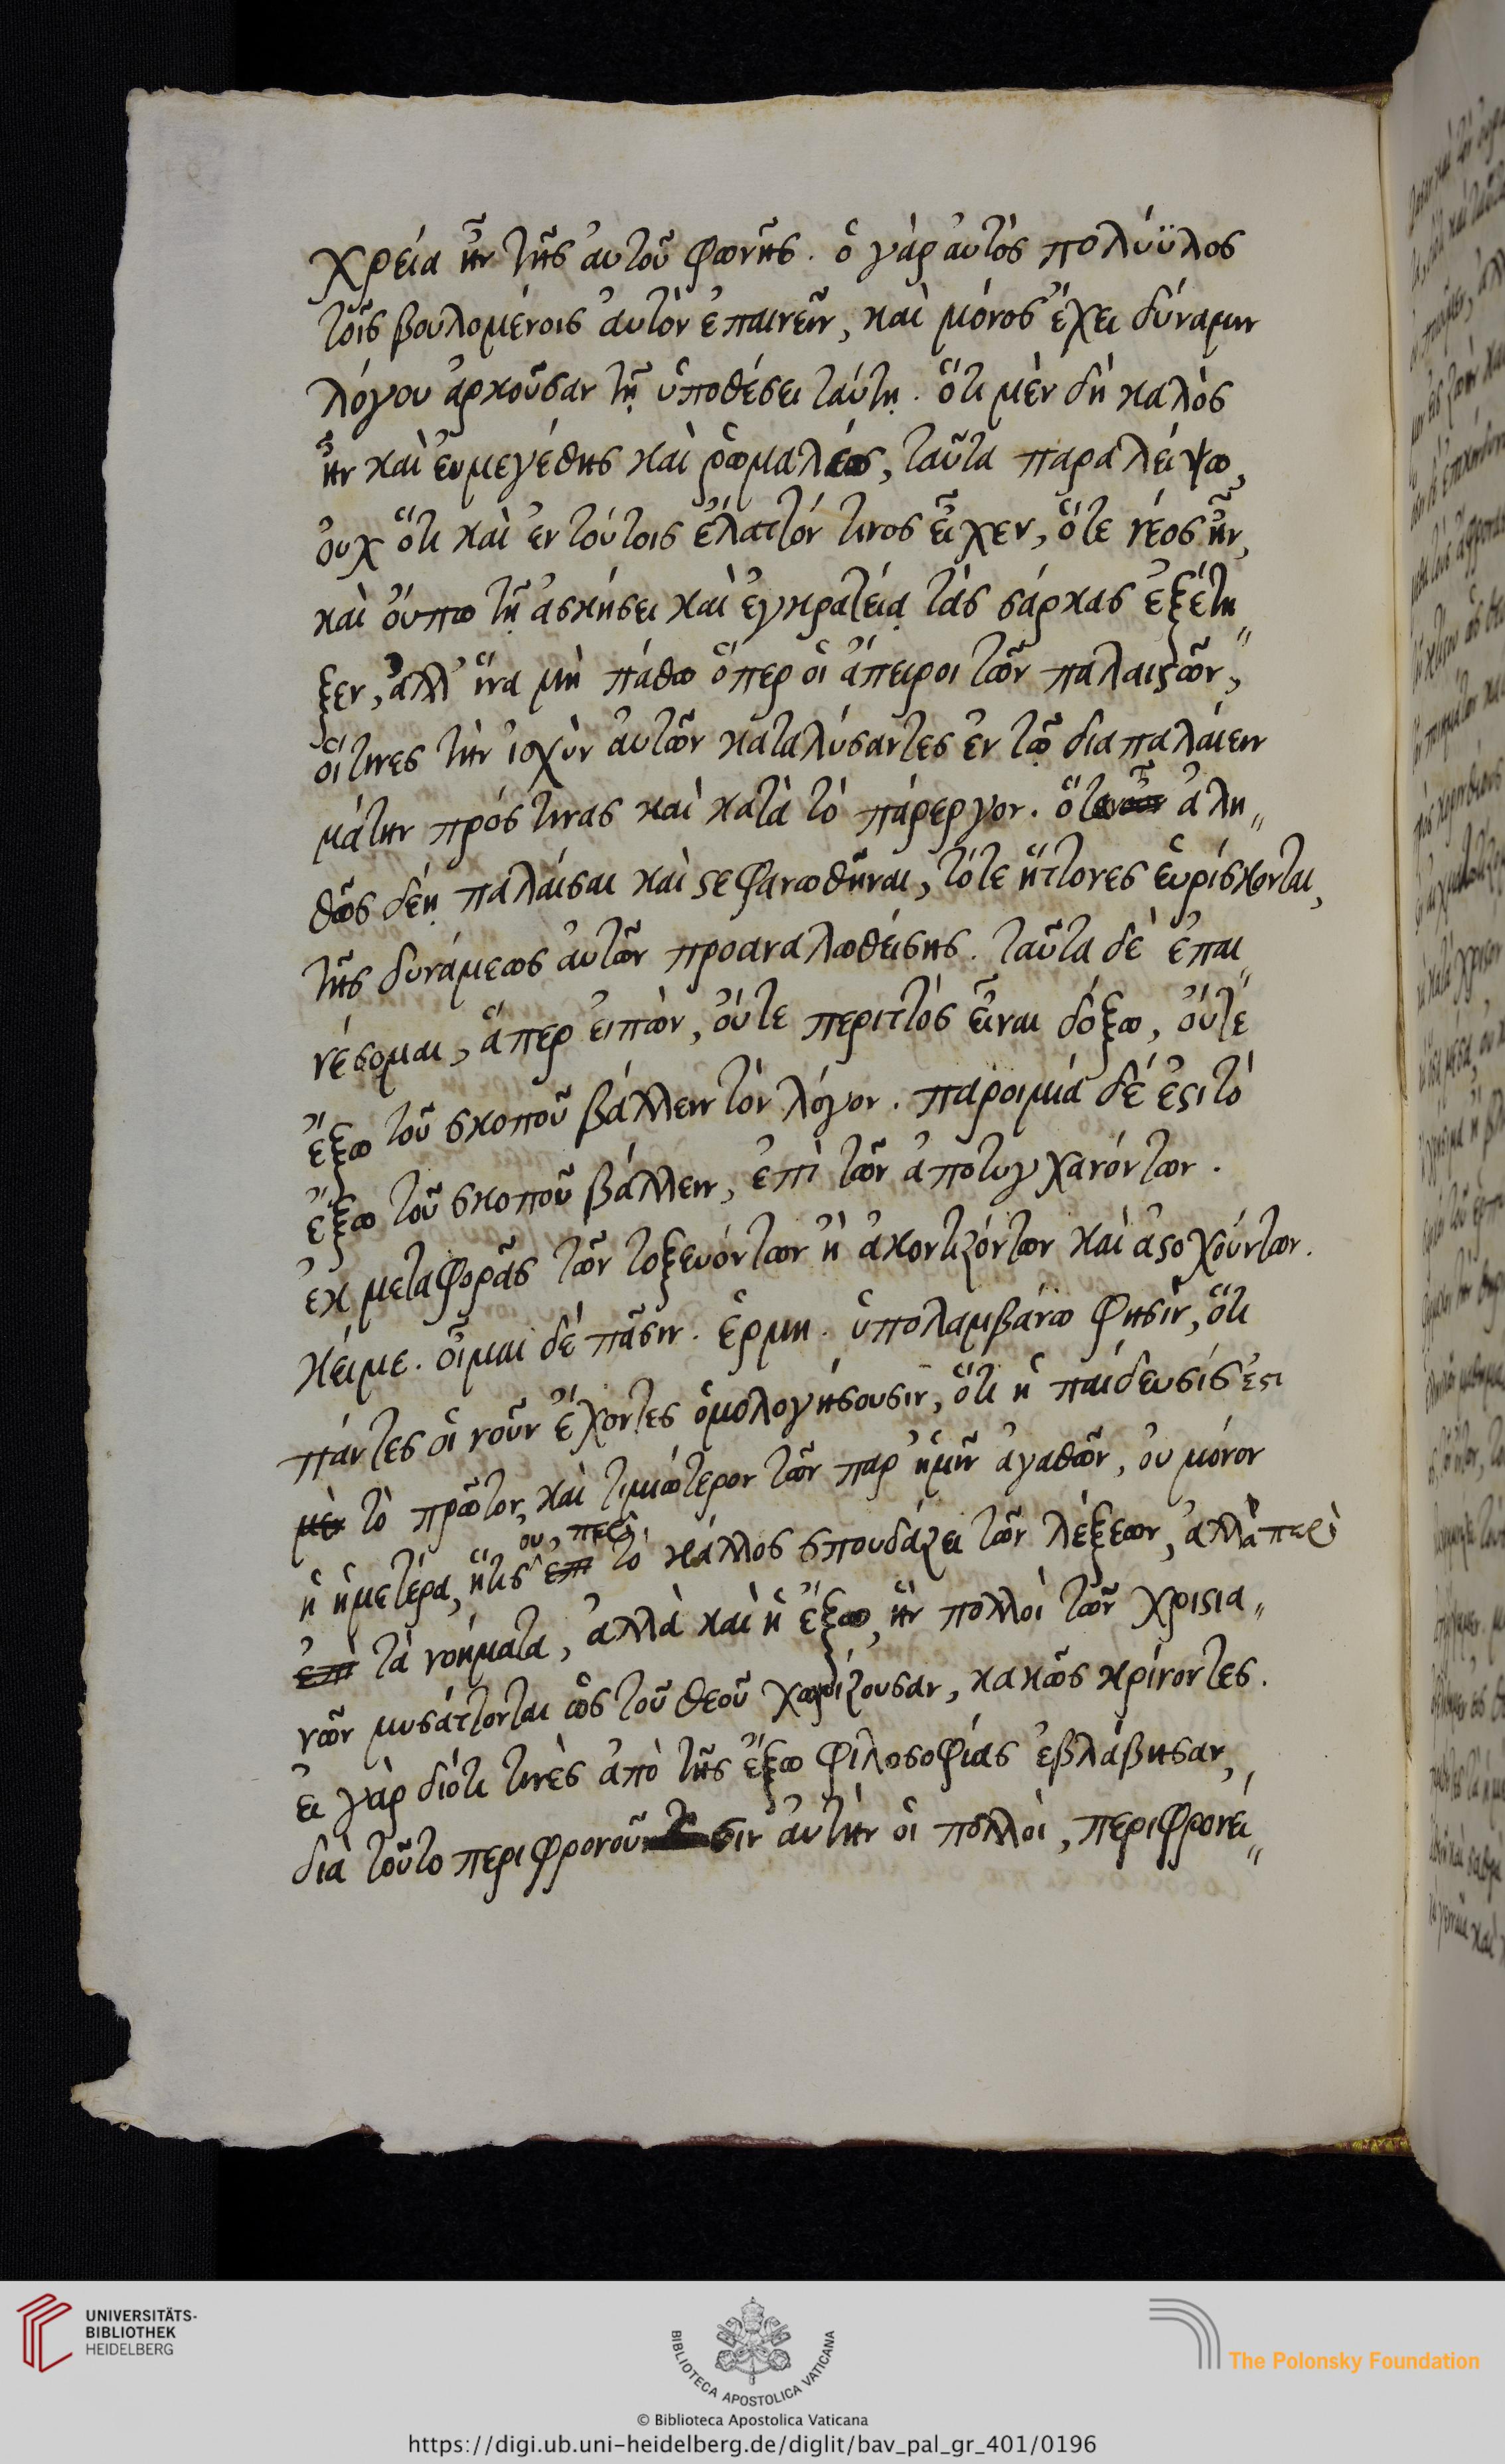 χρεία ἦν τῆς ἀυτοῦ φωνῆς. ὁ γὰρ ἀυτὸς πολύϋλος
τοῖς βουλομένοις ἀυτὸν ἐπαινεῖν, καὶ μόνος ἔχει δύναμιν
λόγου ἀρκοῦσαν τῇ ὑποθέσει ταύτῃ. ὅτι μὲν δὴ καλὸς
ἦν καὶ ἐυμεγέθης καὶ ῥωμαλέως, ταῦτα παραλείψω,
ὀυχ ὅτι καὶ ἐν τούτοις ἔλαττόν τινος εἶχεν, ὅτε νέος ἦν,
καὶ όυπω τῇ ἀσκήσει καὶ ἐγκρατείᾳ τὰς σάρκας ἐξέτη„
ξεν, ἀλλ' ἵνα μὴ πάθω ὅπερ ὁι ἄπειροι τῶν παλαιϛῶν,
οἵτινες τὴν ἰσχὺν ἀυτῶν καταλύσαντες ἐν τῷ διαπαλάιειν
μάτην πρός τινας καὶ κατὰ τὸ πάρεργον. ὅταν ἀλη„
θῶς δέῃ παλάισαι καὶ ϛεφανωθῆναι, τότε ἥττονες ἑυρίσκονται,
τῆς δυνάμεως ἀυτῶν προαναλωθείσης. ταῦτα δὲ ἐπαι„
νέσομαι, ἅπερ ἐιπὼν, ὄυτε περιττὸς εἶναι δόξω, ὄυτε
ἔξω τοῦ σκοποῦ βάλλειν τὸν λόγον. παροιμία δέ ἐϛι τὸ
ἔξω τοῦ σκοποῦ βάλλειν, ἐπὶ τῶν ἀποτυγχανόντων.
ἐκ μεταφορᾶς τῶν τοξευόντων ἢ ἀκοντιζόντων καὶ ἀϛοχούντων.
κέιμε. οἶμαι δὲ πᾶσιν. ἑρμη. ὑπολαμβάνω φησὶν, ὅτι
πάντες ὁι νοῦν ἔχοντες ὁμολογήσουσιν, ὅτι ἡ παίδευσίς ἐϛι
μὲν τὸ πρῶτον, καὶ τιμιώτερον τῶν παρ' ἡμῖν ἀγαθῶν, ὀυ μόνον
ὀυ περὶ
ἡ ἡμετέρα, ἥτις ἐπὶ τὸ κάλλος σπουδάζει τῶν λέξεων, ἀλλὰ περὶ
ἐπὶ τὰ νοήματα, ἀλλὰ καὶ ἡ ἔξω, ἣν πολλοὶ τῶν χριϛια„
νῶν μυσάττονται ὡς τοῦ θεοῦ χωρίζουσαν, κακῶς κρίνοντες.
ἐι γὰρ διότι τινὲς ἀπὸ τῆς ἔξω φιλοσοφίας ἐβλάβησαν,
διὰ τοῦτο περιφρονοῦσιν ἀυτὴν ὁι πολλοὶ, περιφρονέι„
UNIVERSITÄTS-
BIBLIOTHEK
HEIDELBERG
BIBLIOTECA APOSTOLICA VATICANA
The Polonsky Foundation
© Biblioteca Apostolica Vaticana
https://digi.ub.uni-heidelberg.de/diglit/bav_pal_gr_401/0196